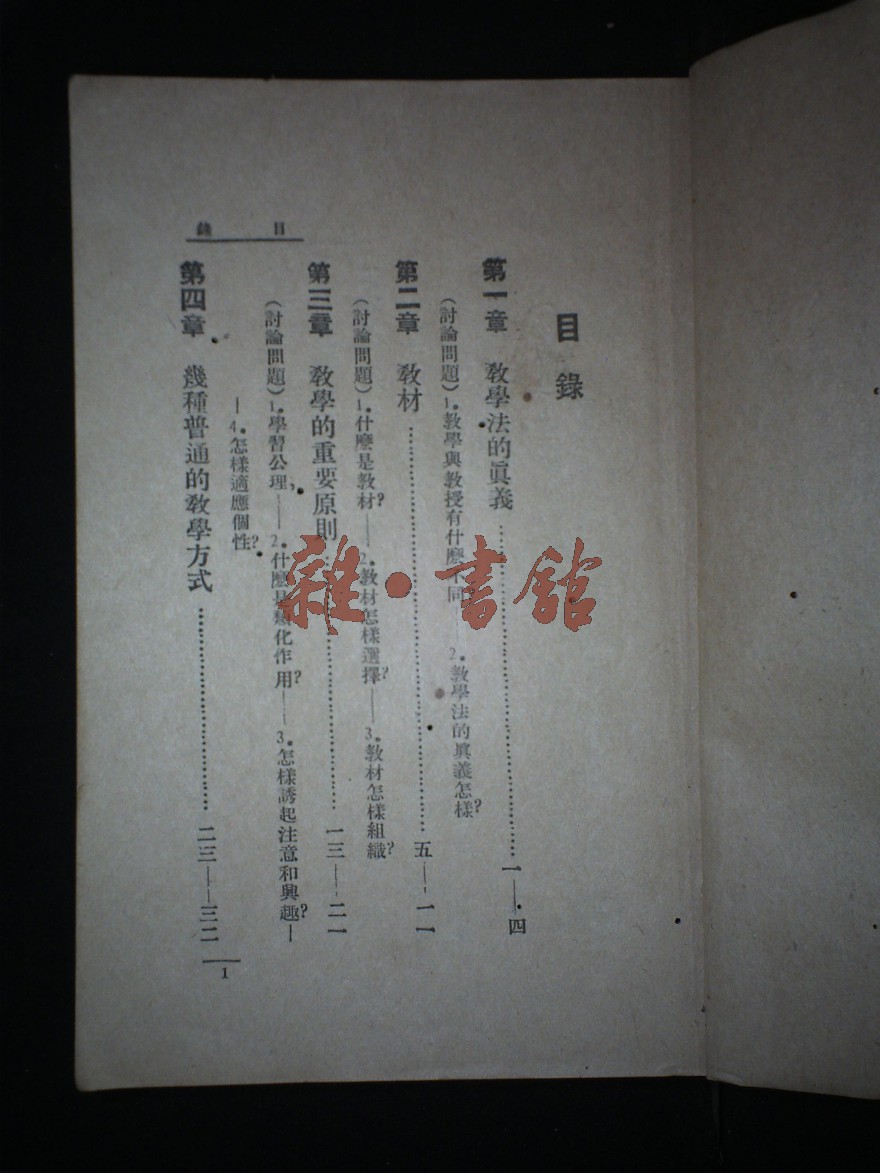 目錄
第一章　教學法的眞義…………一——四
（討論問題）1.教學與教授有什麼不同——2.教學法的眞義怎樣？
第二章　教材…………五——一一
（討論問題）1.什麼是教材？——2.教材怎樣選擇？——3.教材怎樣組織？
第三章　教學的重要原則…………一三——二一
（討論問題）1.學習公理，——2.什麼是類化作用？——3.怎樣誘起注意和興趣？—
—4.怎樣適應個性？
第四章　幾種普通的教學方式…………二三——三二
目錄
1
雜·書館